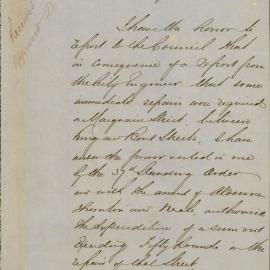 Received
I have the honor to
report to the Council that
in consequence of a report from
the City Engineer that some
immediate repairs were required
in Margaret Street between
King and Kent Streets, I have
under the power vested in me
by the 37th Standing Order
and with the assent of Aldermen
Thornton and Neale authorised
the expenditure of a sum not
exceeding Fifty Pounds in the
repair of that Street